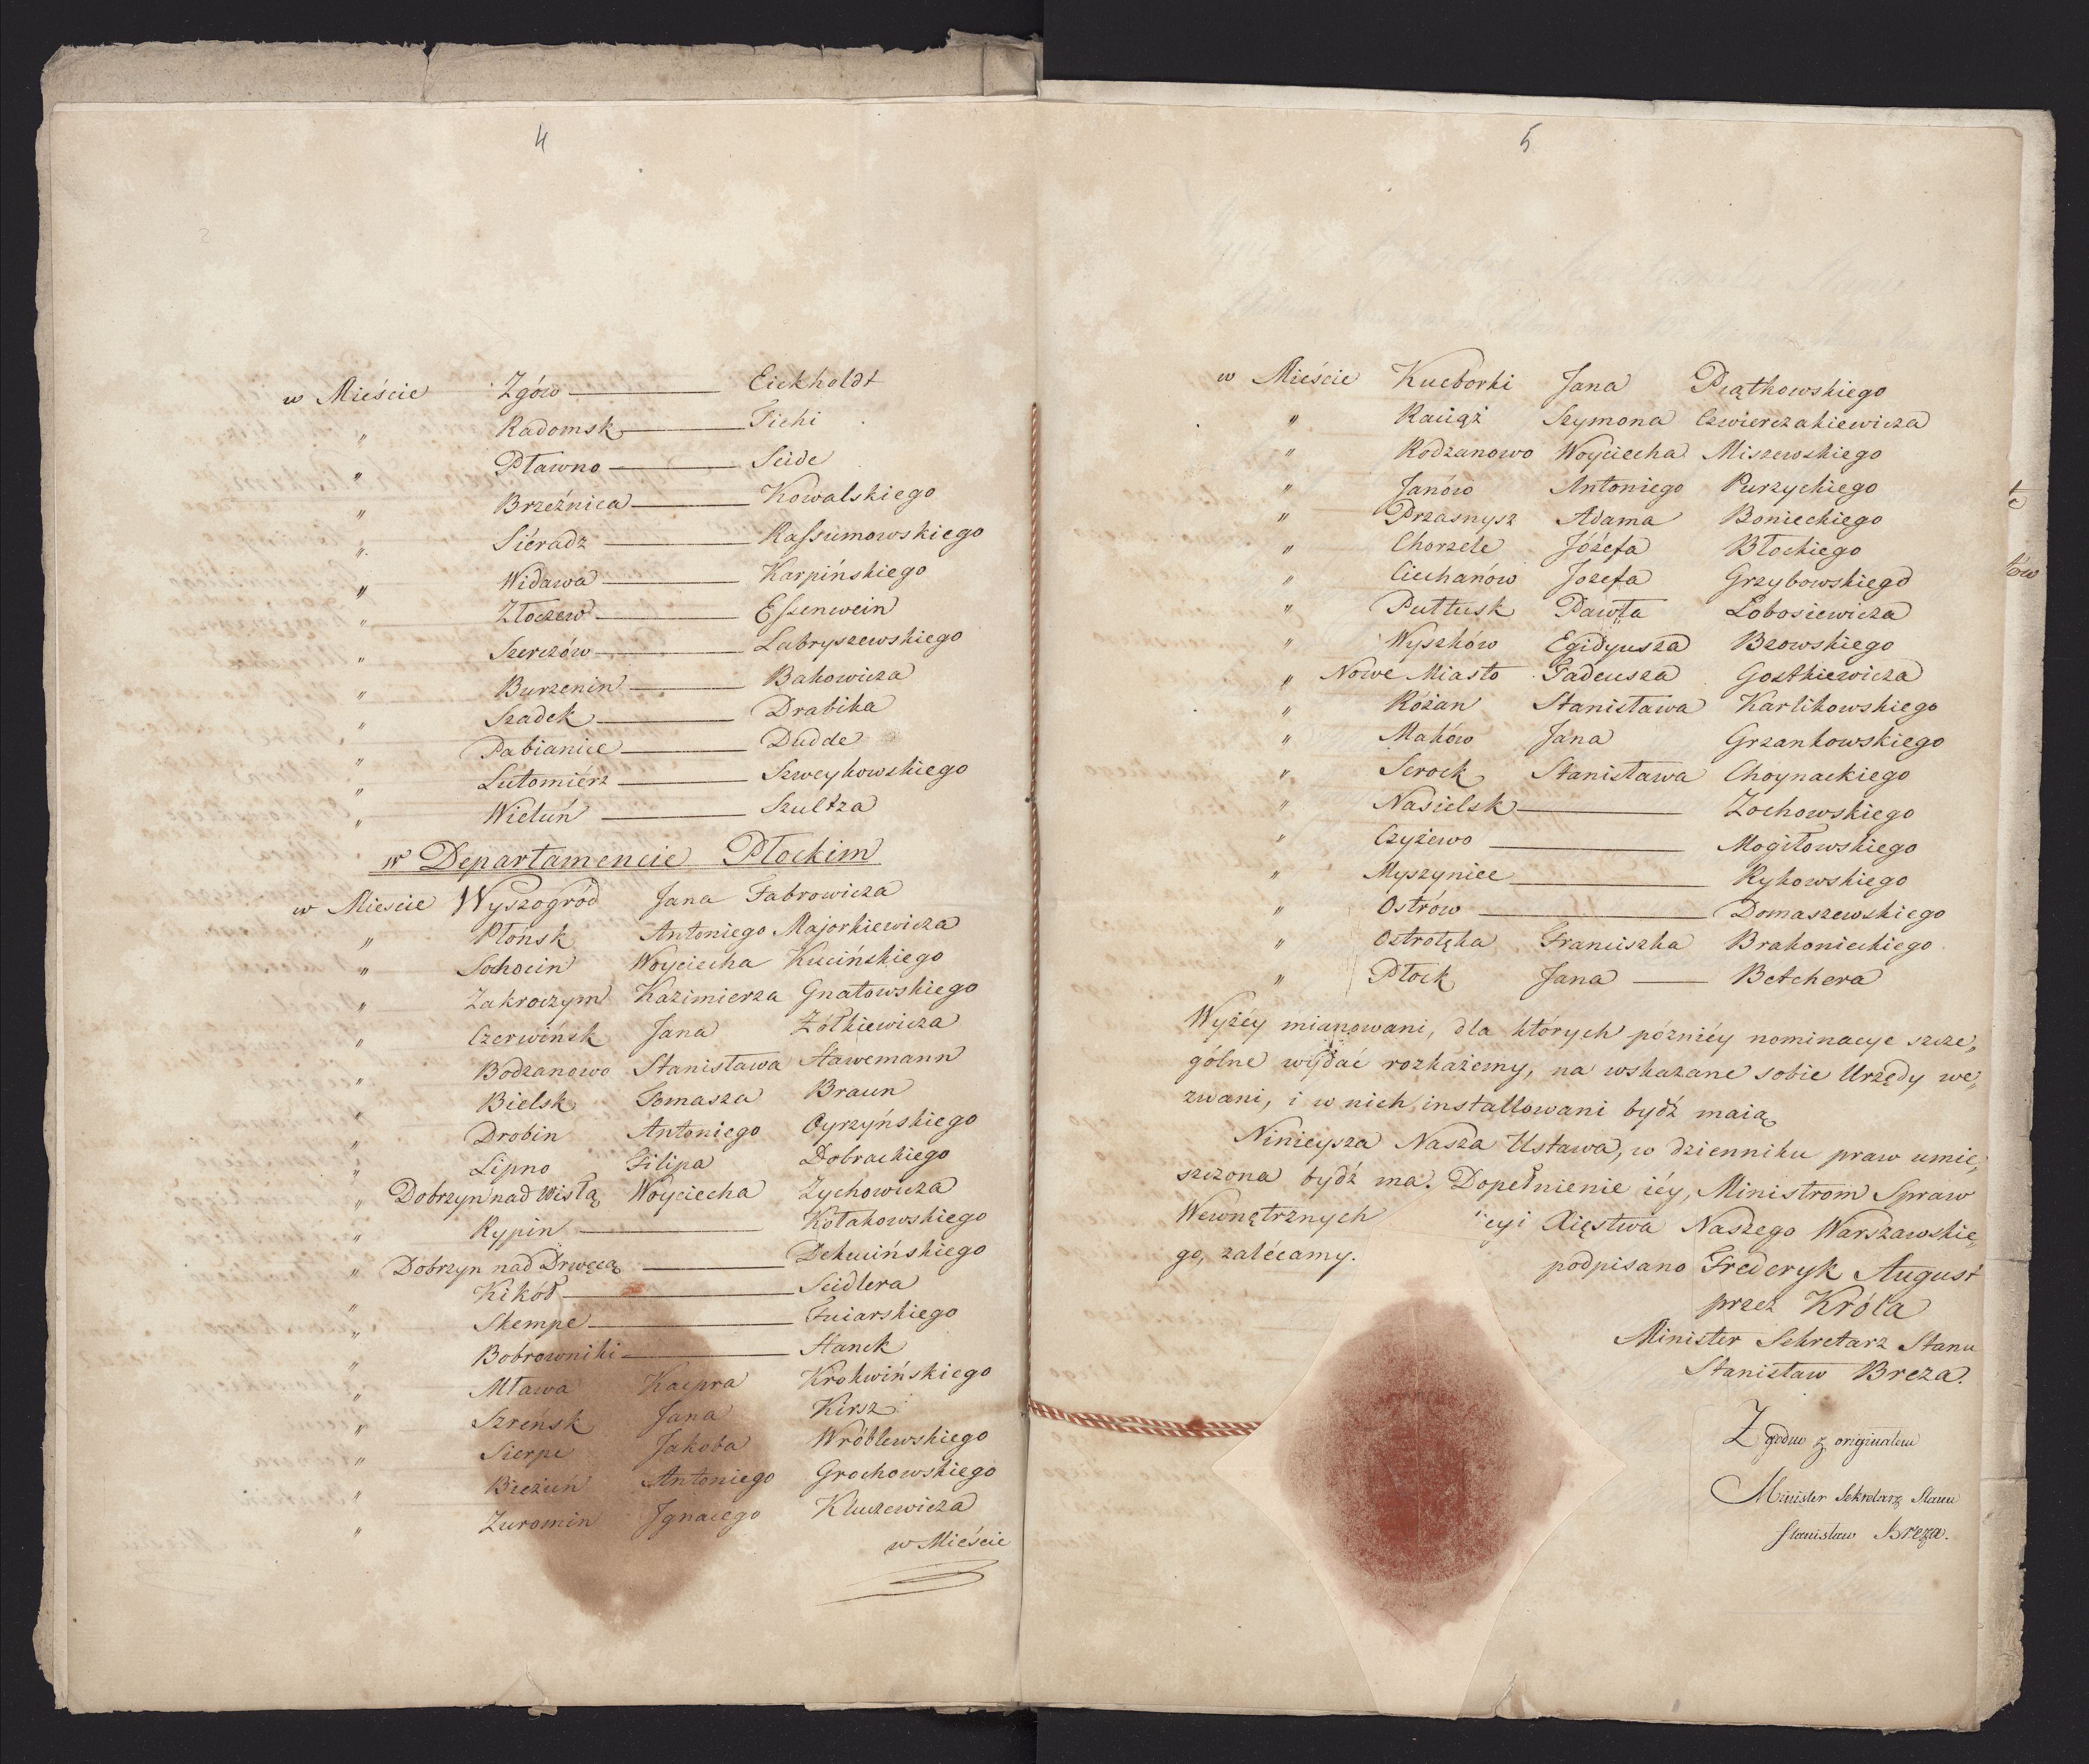 4
w Mieście Zgów Eickholdt
" Radomsk Fichi
" Pławno Seide
" Brzeźnica Kowalskiego
" Siéradz Rassumowskiego
" Widawa Karpińskiego
" Złoczew Essenwein
" Szerczów Labryszewskiego
" Burzenin Bakowicza
" Szadek Drabika
" Pabianice Dudde
" Lutomiérz Szweykowskiego
" Wieluń Szultza
w Departamencie Płockim
w Mieście Wyszogród Jana Fabrowicza
" Płońsk Antoniego Majorkiewicza
" Sochocin Woyciecha Kucińskiego
" Zakroczym Kazimierza Gnatowskiego
" Czerwińsk Jana Żółkiewicza
" Bodzanowo Stanisława Stawemann
" Bielsk Tomasza Braun
" Drobin Antoniego Oyrzyńskiego
" Lipno Filipa Dobrackiego
" Dobrzyn nad Wisłą Woyciecha Zychowicza
" Rypin Kołakowskiego
" Dobrzyn nad Drwęcą Dekucińskiego
" Kikół Seidlera
" Skempe Fuiarskiego
" Bobrowniki Stanek
" Mława Kacpra Krokwińskiego
" Szreńsk Jana Kirsz
" Sierpc Jakoba Wróblewskiego
" Bieżuń Antoniego Grochowskiego
" Zuromin Jgnacego Kluczewicza
w Mieście
5
w Mieście Kucborki Jana Piątkowskiego
" Raciąż Szymona Czwierczakiewicza
" Rodzanowo Woyciecha Miszewskiego
" Janów Antoniego Purzyckiego
" Przasnysz Adama Bonieckiego
" Chorzele Józefa Błockiego
" Ciechanów Jozefa Grzybowskiego
" Pułtusk Pawła Lobosiewicza
" Wyszków Egidyusza Bzowskiego
" Nowe Miasto Tadeusza Gostkiewicza
" Różan Stanisława Karlikowskiego
" Maków Jana Grzankowskiego
" Serock Stanisława Choynackiego
" Nasielsk Zochowskiego
" Czyżewo Mogiłowskiego
" Myszyniec Rykowskiego
" Ostrów Domaszewskiego
" Ostrołęka Franciszka Brakonieckiego
" Płock Jana Betchera
Wyżéy mianowani, dla których pózniéy nominacye szcze„
gólne wydać rozkażemy, na wskazane sobie Urzędy we„
zwani, i w nich installowani bydź maią
Ninieysza Nasza Ustawa, w dzienniku praw umie„
szczona bydź ma. Dopełnienie iéy, Ministrom Spraw
Wewnętrznych cyi Xięstwa Naszego Warszawskie„
go, zalécamy.
podpisano Frederyk August
przez Króla
Minister Sekretarz Stanu
Stanisław Breza.
Zgodno z originałem
Minister Sekretarz Stanu
Stanisław Breza.